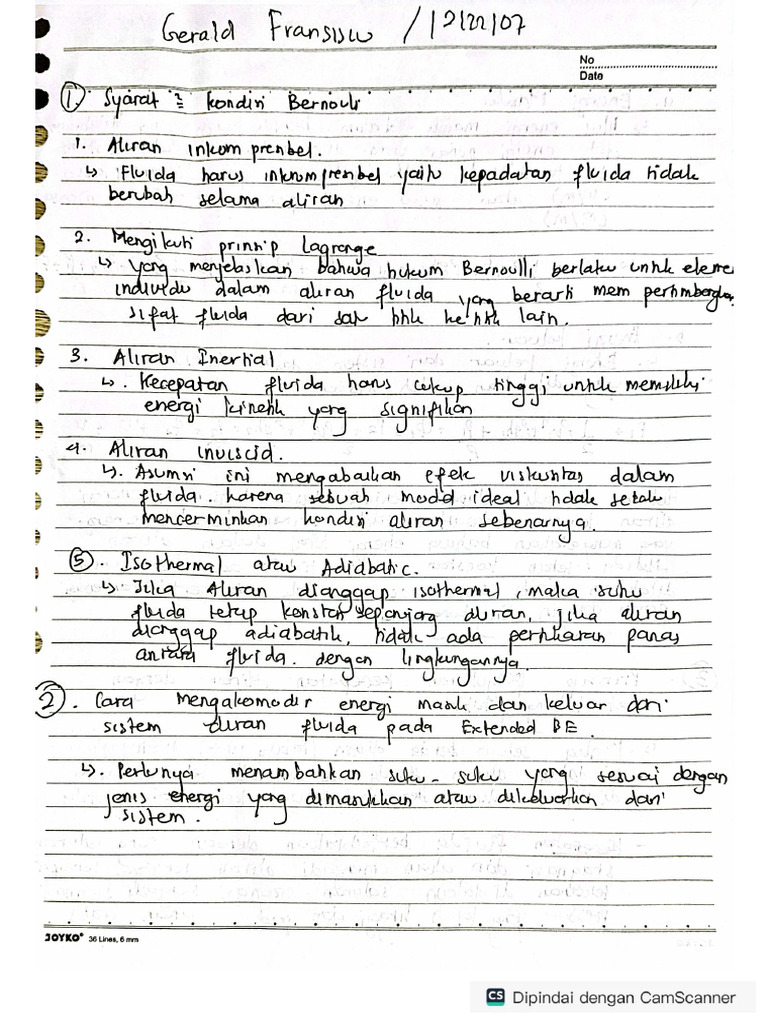 Gerald Fransisco / 12122107
No
Date
① Syarat² kondisi Bernoulli
1. Aliran inkomprenbel.
↳ Fluida harus inkomprenbel yaitu kepadatan fluida tidak
berubah selama aliran
2. Mengikuti prinsip Lagrange
↳ yang menjelaskan bahwa hukum Bernoulli berlaku untuk eleme
individu dalam aliran fluida yang berarti mem pertimbangkan
sifat fluida dari satu titik ke titik lain.
3. Aliran Inertial
↳. Kecepatan fluida harus cukup tinggi untuk memiliki
energi kinetik yang signifikan
4. Aliran inviscid.
↳. Asumsi ini mengabaikan efek viskositas dalam
fluida. karena sebuah model ideal tidak selalu
mencerminkan kondisi aliran sebenarnya.
⑤. Isothermal atau Adiabatic.
↳ Jika Aliran dianggap isothermal, maka suhu
fluida tetap konstan sepanjang aliran, jika aliran
dianggap adiabatik, tidak ada pertukaran panas
antara fluida. dengan lingkungannya.
②. Cara mengakomodir energi masuk dan keluar dari
sistem aliran fluida pada Extended BE.
↳. Perlunya menambahkan suku-suku yang sesuai dengan
jenis energi yang dimasukkan atau dikeluarkan dari
sistem.
JOYKO® 36 Lines, 6 mm
CS Dipindai dengan CamScanner